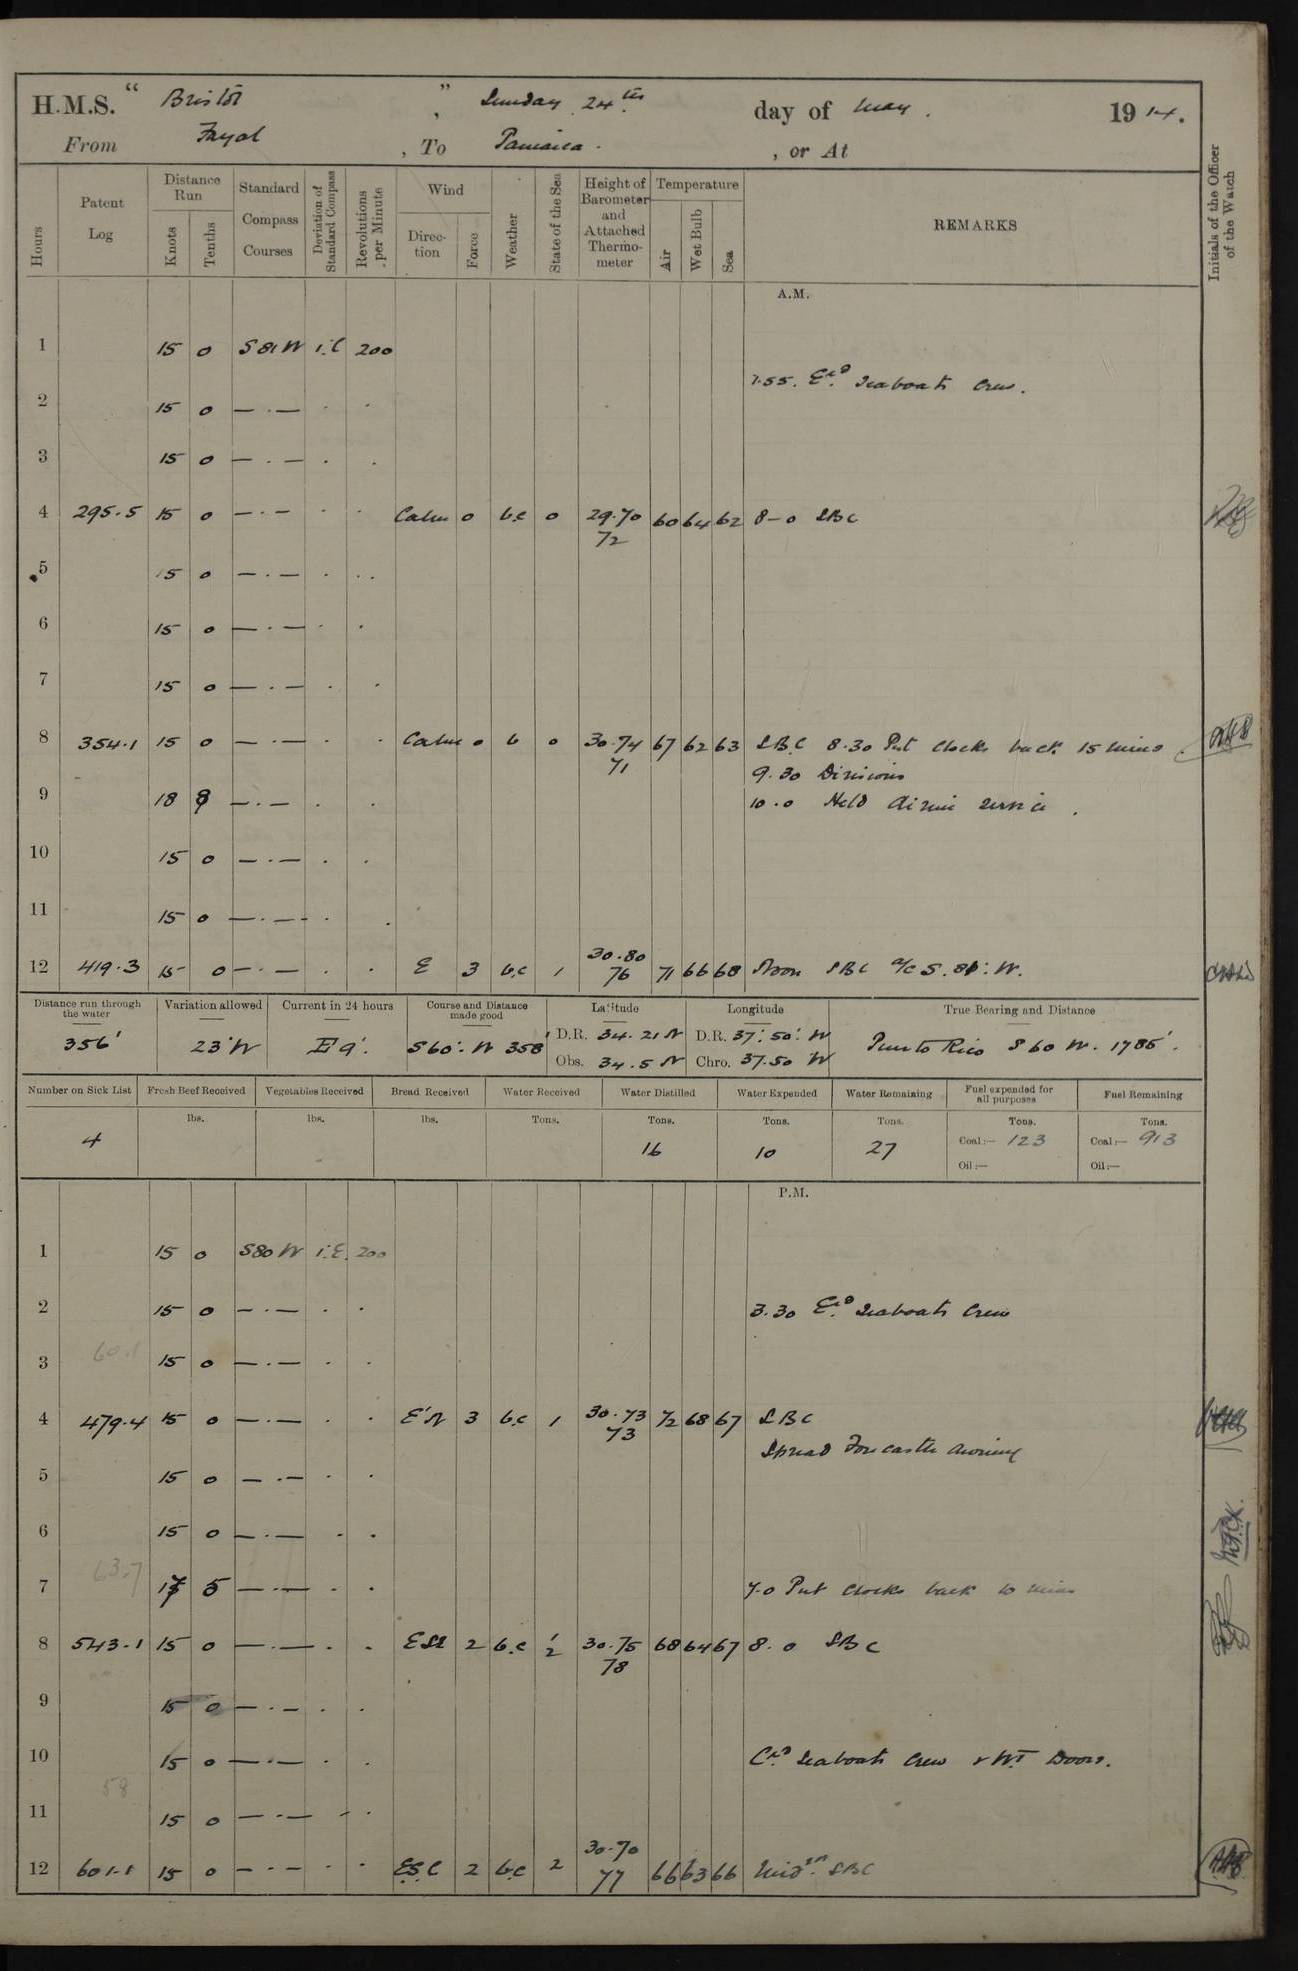 H.M.S. “ Bristol ” , Sunday 24th day of May . 19 14.
From Fayal , To Jamaica . , or At
Hours Patent Log Distance Run Knots Tenths Standard Compass Courses Deviation of Standard Compass Revolutions per Minute Wind Direction Force Weather State of the Sea Height of Barometer and Attached Thermometer Temperature Air Wet Bulb Sea REMARKS Initials of the Officer of the Watch
A.M.
1 15 0 S 81 W 1.E 200
7.55. Exd Seaboats Crew.
2 15 0 — · — · ·
3 15 0 — · — · ·
4 295.5 15 0 — · — · · Calm 0 b.c 0 29.70 60 64 62 8-0 SBC
72
5 15 0 — · — · ·
6 15 0 — · — · ·
7 15 0 — · — · ·
8 354.1 15 0 — · — · · Calm 0 b 0 30.74 67 62 63 SBC 8.30 Put clocks back 15 mins.
71
9.30 Divisions
9 18 8 — · — · · 10.0 Held divine service .
10 15 0 — · — · ·
11 15 0 — · — · ·
12 419.3 15 0 — · — · · E 3 b.c 1 30.80 71 66 68 Noon SBC a/c S. 80. W.
76
Distance run through the water Variation allowed Current in 24 hours Course and Distance made good Latitude Longitude True Bearing and Distance
356' 23° W 9'. S 60° W 358' D.R. 34. 21 N D.R. 37° 50' W Puerto Rico S 60 W. 1785'.
Obs. 34. 5 N Chro. 37.50 W
Number on Sick List Fresh Beef Received Vegetables Received Bread Received Water Received Water Distilled Water Expended Water Remaining Fuel expended for all purposes Fuel Remaining
lbs. lbs. lbs. Tons. Tons. Tons. Tons. Tons. Tons.
4 16 10 27 Coal :— 123 Coal :— 913
Oil :— Oil :—
P.M.
1 15 0 S80 W 1.E. 200
2 15 0 — · — · · 3.30 Exd Seaboats Crew
3 60.1 15 0 — · — · ·
4 479.4 15 0 — · — · · E'N 3 b.c 1 30.73 72 68 67 SBC
73
Spread Forecastle Awning
5 15 0 — · — · ·
6 15 0 — · — · ·
7 63.7 17 5 — · — · · 7.0 Put clocks back 10 mins
8 543.1 15 0 — · — · · 2 b.c 1/2 30.75 68 64 67 8.0 SBC
78
9 15 0 — · — · ·
10 15 0 — · — · · Exd Seaboats Crew & W.T Doors.
58
11 15 0 — · — · ·
12 601.1 15 0 — · — · · ESE 2 b.c 2 30.70 66 63 66 Midnt SBC
77